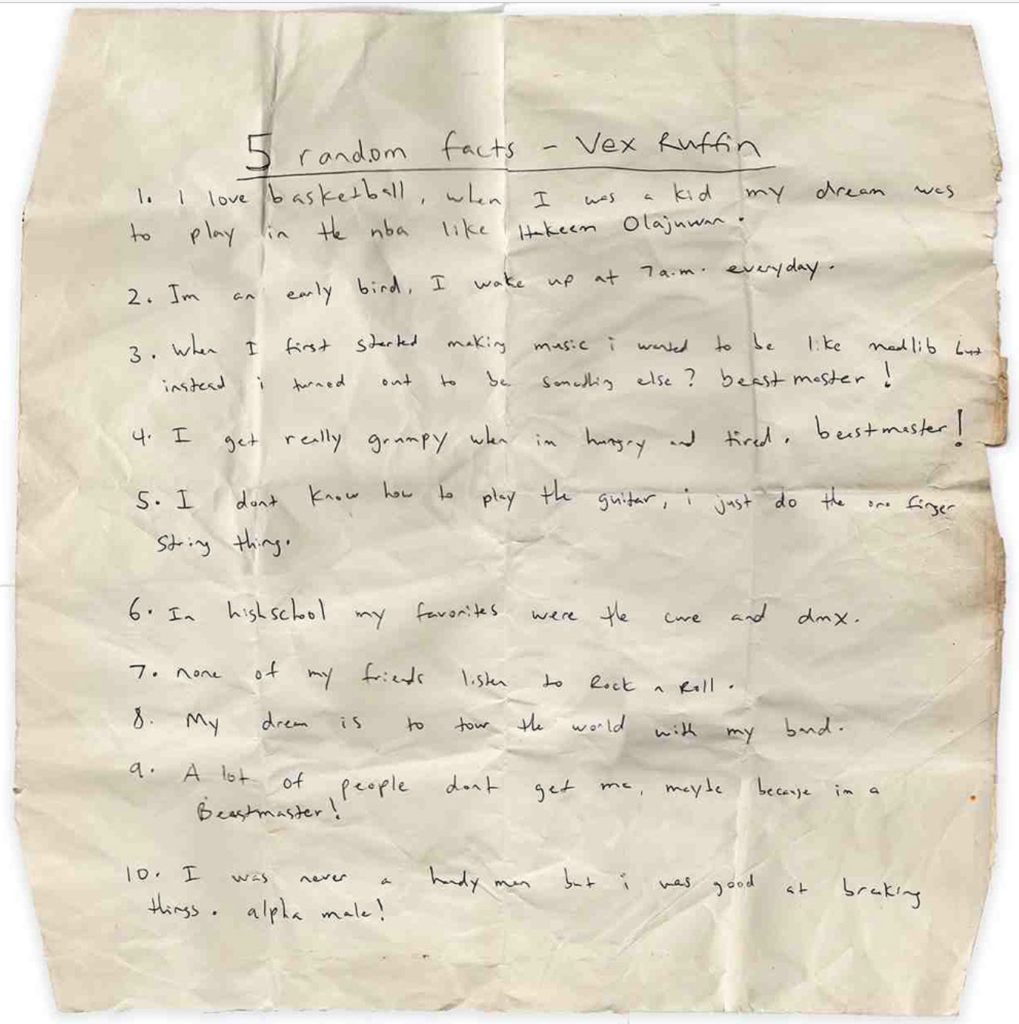 5 random facts - Vex Ruffin
1. I love basketball, when I was a kid my dream was
to play in the nba like Hakeem Olajuwan.
2. Im an early bird, I wake up at 7a.m. everyday.
3. When I first started making music i wanted to be like madlib but
instead i turned out to be something else? beastmaster!
4. I get really grumpy when im hungry and tired. beastmaster!
5. I dont know how to play the guitar, i just do the one finger
string thing.
6. In highschool my favorites were the cure and dmx.
7. none of my friends listen to Rock n Roll.
8. My dream is to tour the world with my band.
9. A lot of people dont get me, maybe because im a
Beastmaster!
10. I was never a handy man but i was good at breaking
things. alpha male!